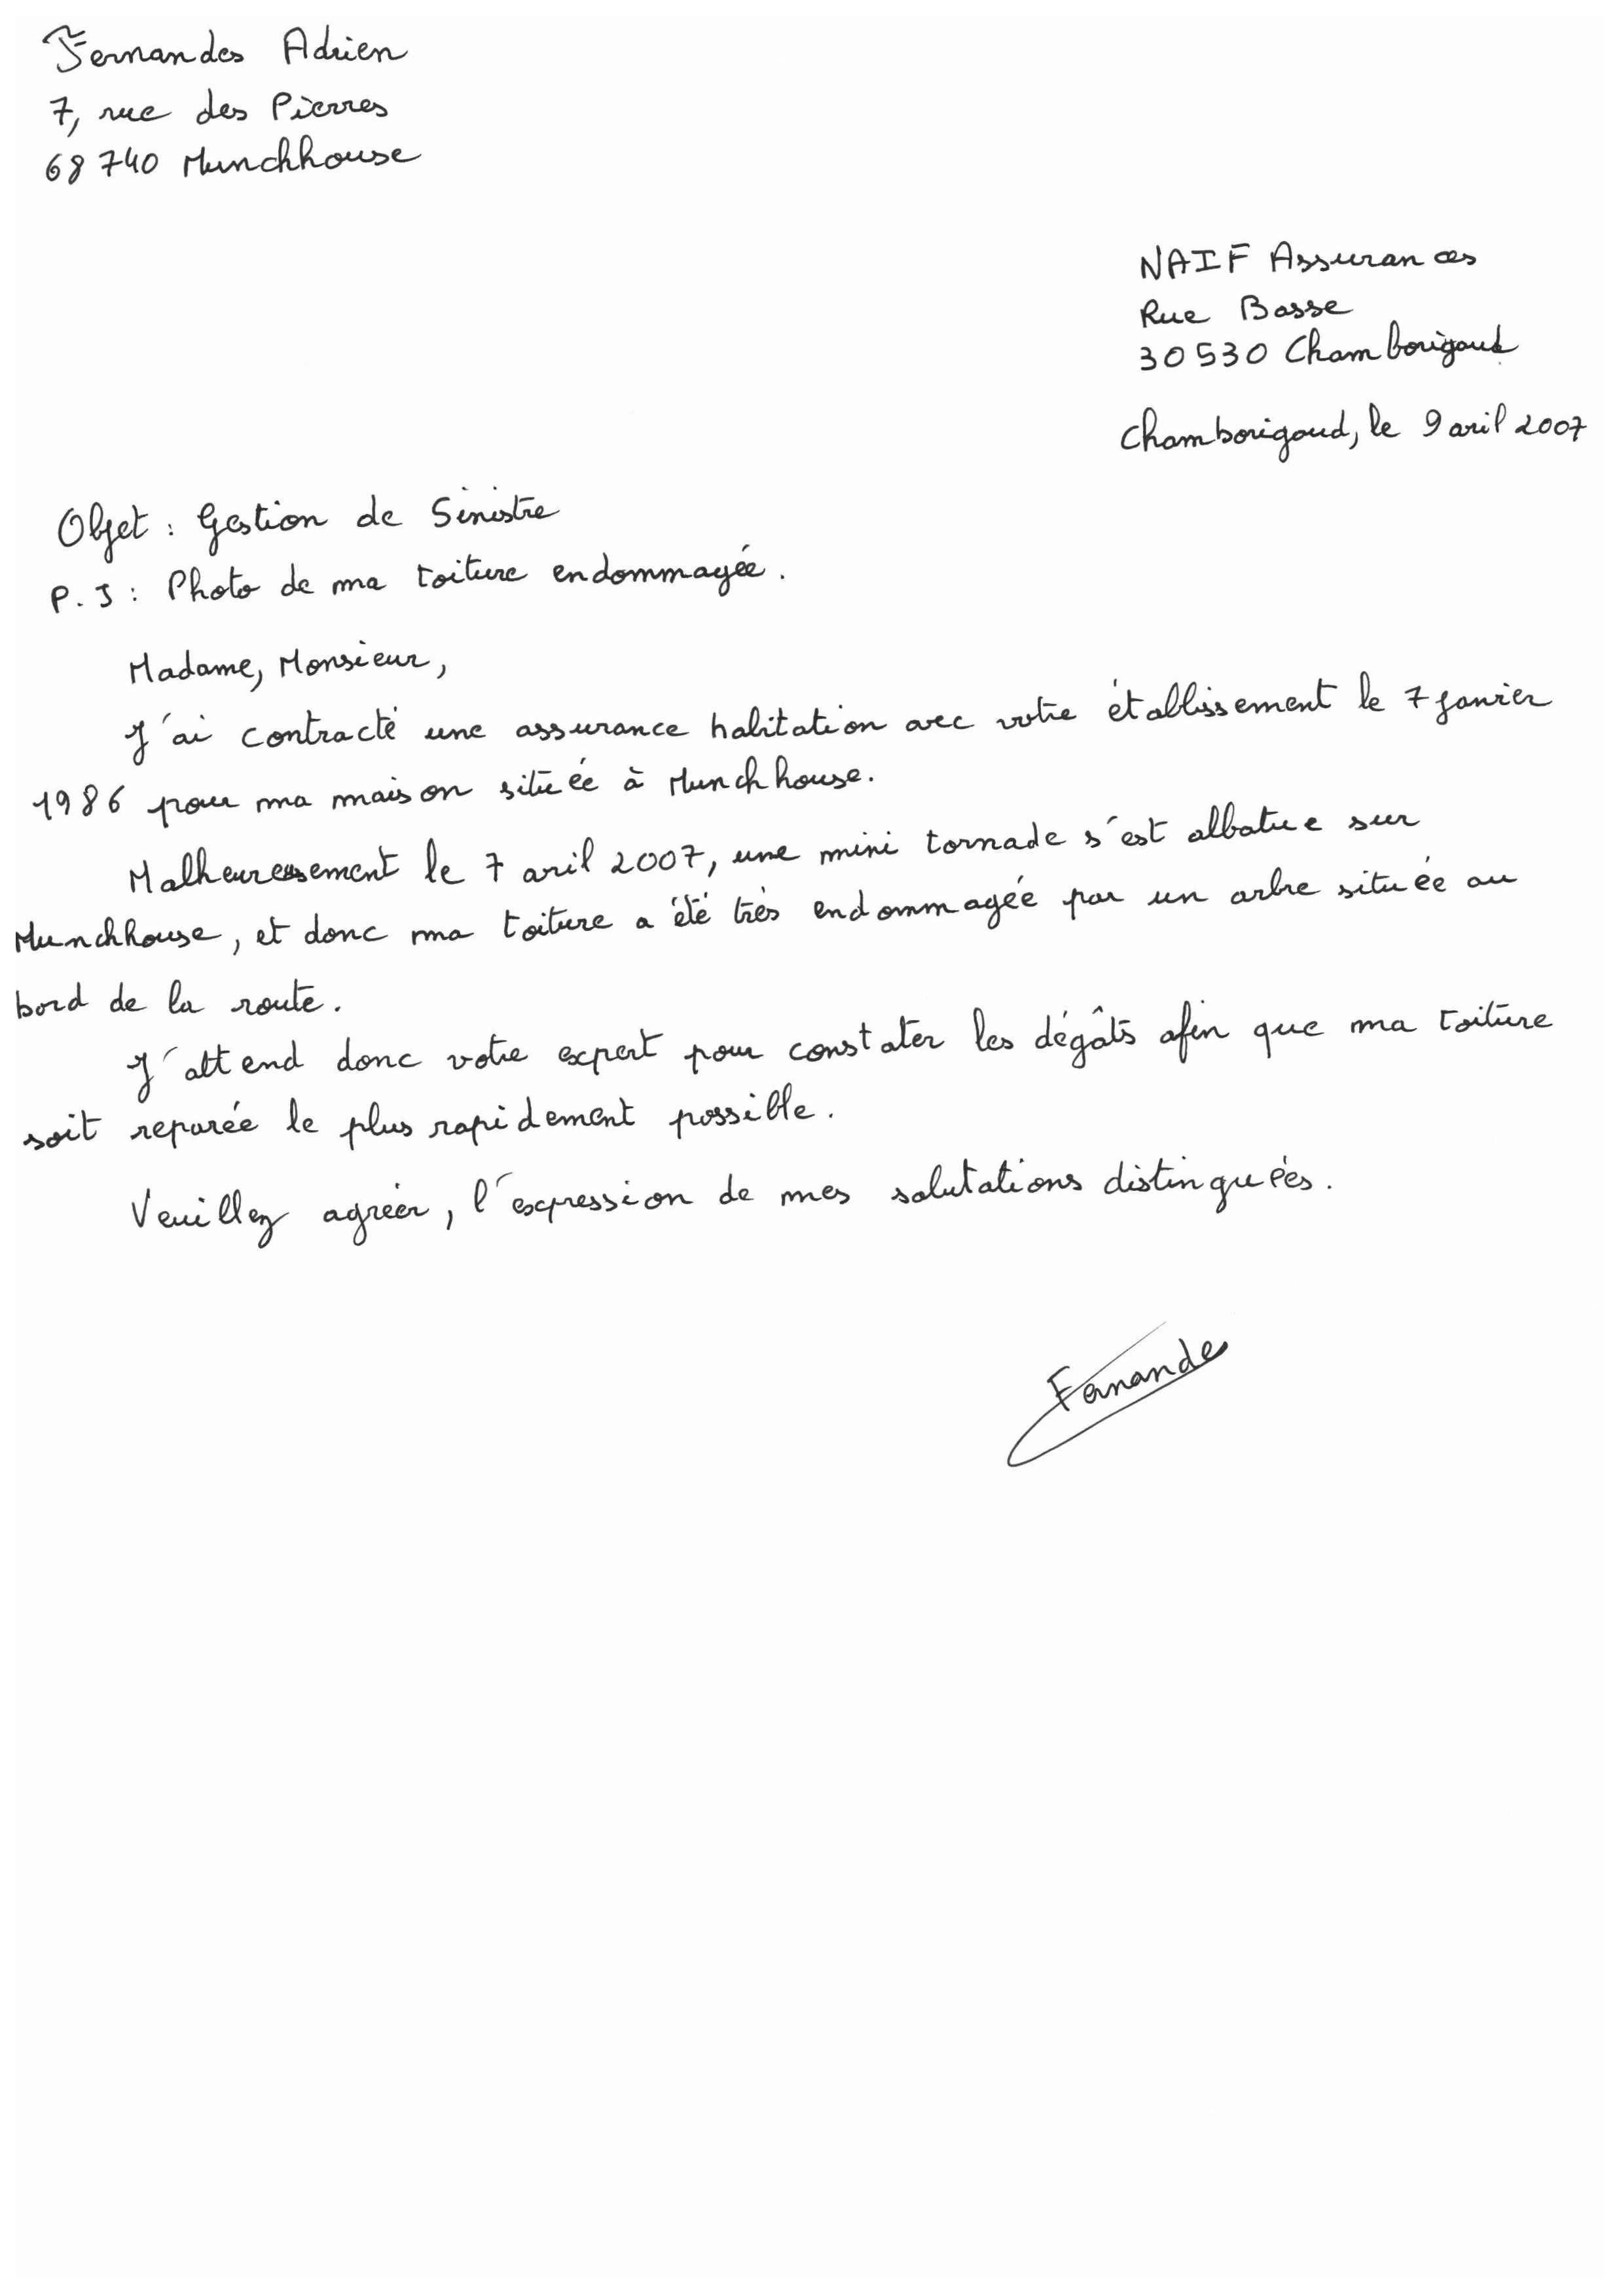 Fernandes Adrien
7, rue des Pierres
68740 Munchhouse
NAIF Assurances
Rue Basse
30530 Chamborigaud
Chamborigaud, le 9 avril 2007
Objet : Gestion de Sinistre
P.J : Photo de ma toiture endommagée.
Madame, Monsieur,
J'ai contracté une assurance habitation avec votre établissement le 7 janvier
1986 pour ma maison située à Munchhouse.
Malheureusement le 7 avril 2007, une mini tornade s'est abbatue sur
Munchhouse, et donc ma toiture a été très endommagée par un arbre située au
bord de la route.
J'attend donc votre expert pour constater les dégâts afin que ma toiture
soit reparée le plus rapidement possible.
Veuillez agréer, l'expression de mes salutations distinguées.
Fernandes